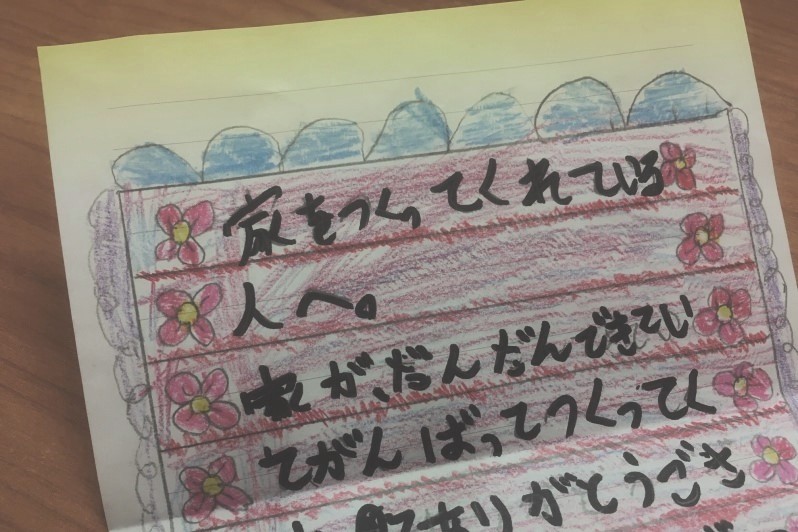 家をつくってくれている
人へ。
家が、だんだんできてい
てがんばってつくってく
ありがとうござ